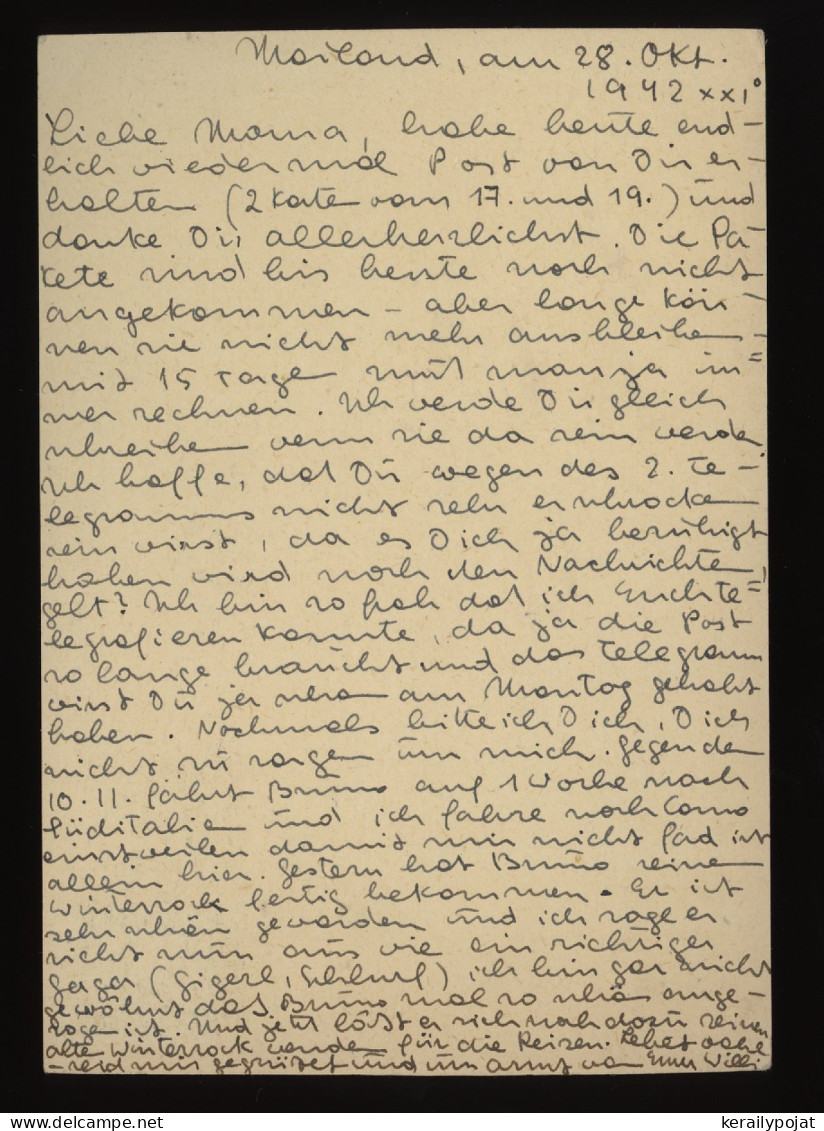 Mailand, am 28. Okt.
1942 XXI°
Liebe Mama, habe heute end-
lich wieder mal Post von Dir er-
halten (2 Karten vom 17. und 19.) und
danke Dir allerherzlichst. Die Pa-
kete sind bis heute noch nicht
angekommen - aber lange kön-
nen sie nicht mehr ausbleiben -
mit 15 Tagen muß man ja im=
mer rechnen. Ich werde Dir gleich
schreiben wenn sie da sein werden
Ich hoffe, daß Du wegen des 2. Te-
legramms nicht sehr erschrocken
sein wirst, da es Dich ja beruhigt
haben wird nach den Nachrichten,
gelt? Ich bin so froh daß ich Euch te=
legrafieren konnte, da ja die Post
so lange braucht und das Telegramm
wirst Du ja schon am Montag gehabt
haben. Nochmals bitte ich Dich, Dich
nicht zu sorgen um mich. Gegen den
10.11. fährt Bruno auf 1 Woche nach
Süditalien und ich fahre nach Como
einstweilen damit mir nicht fad ist
allein hier. Gestern hat Bruno seinen
Winterrock fertig bekommen. Er ist
sehr schön geworden und ich sage er
sieht nun aus wie ein richtiger
Gaga (Gigerl, Schlurf) ich bin gar nicht
gewöhnt daß Bruno mal so schön ange-
zogen ist. Und jetzt läßt er sich noch dazu seinen
alten Winterrock wenden für die Reisen. Lebet wohl
- seid mir gegrüßet und umarmt von Eurer Willi
kerailypojat